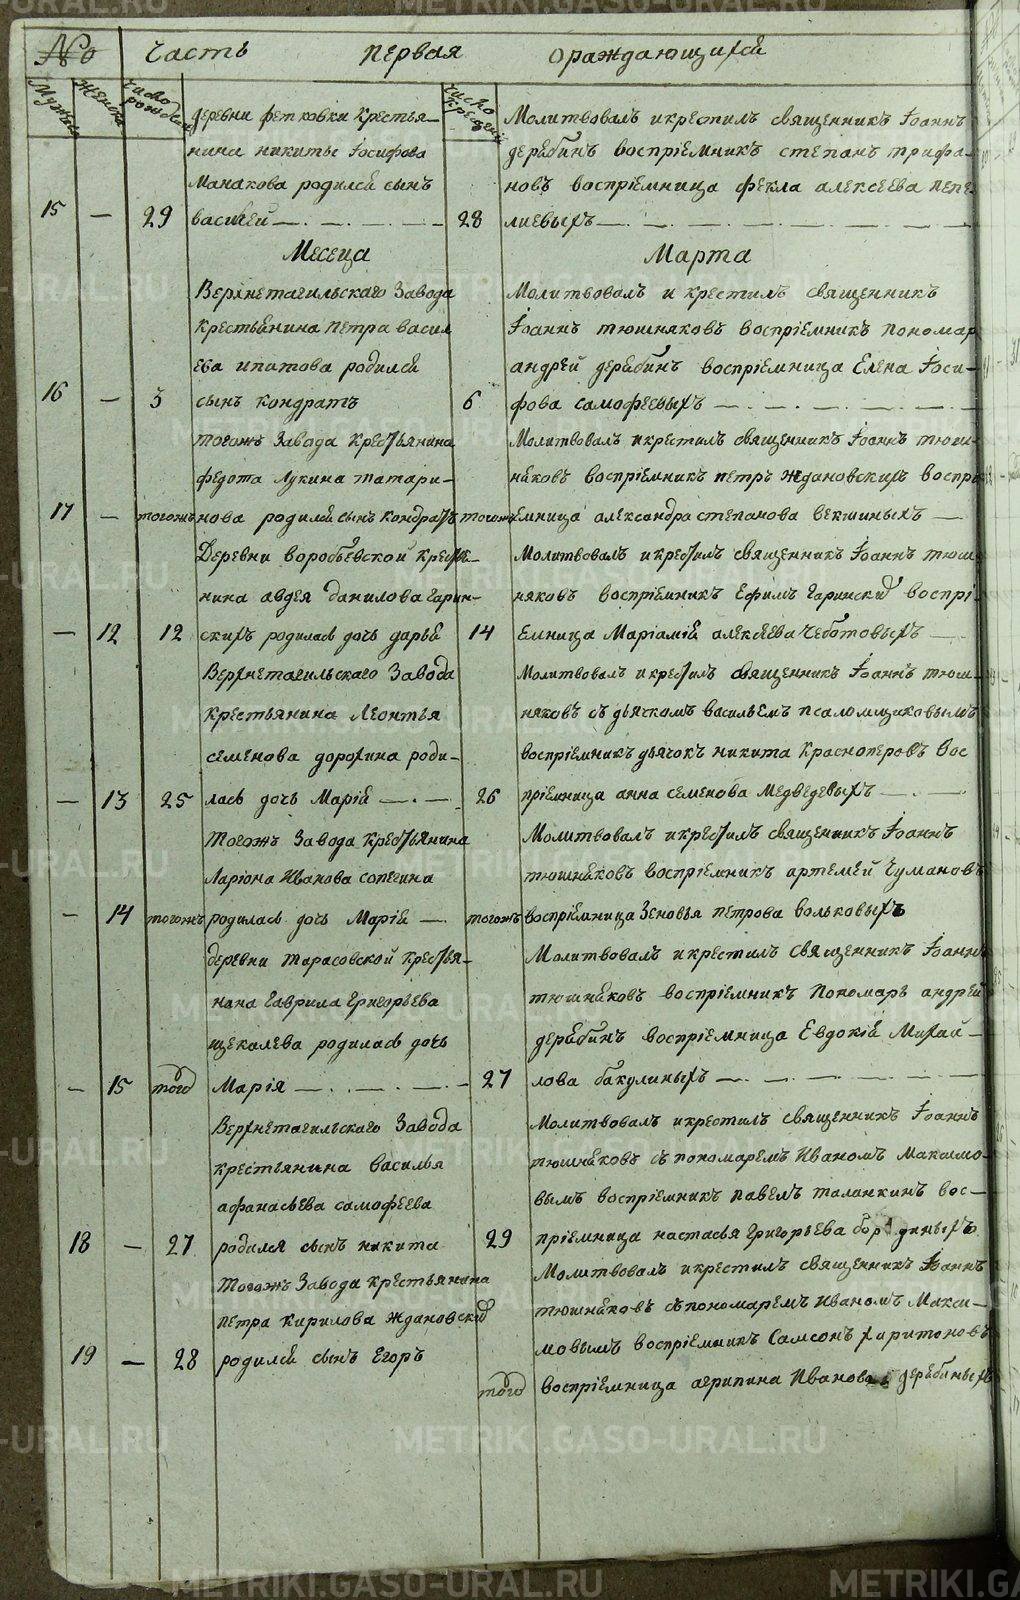 № Часть первая ораждающихся
Мужеска
Женска
Число рожде
Число крещения
деревни фетковки крестья-
нина никиты Іосифова
Манакова родился сынъ
15 — 29 василей
28
Молитвовалъ и крестилъ священникъ Іоаннъ
дерябинъ воспріемникъ степанъ трифа-
новъ воспріемница фекла алексеева пепе-
лиевыхъ
Месеца Марта
Верхнетагильскаго Завода
крестьянина петра васил
ева ипатова родился
16 — 3 сынъ кондратъ
6
Молитвовалъ и крестилъ священникъ
Іоаннъ тюшняковъ воспріемникъ пономар
андрей дерябинъ воспріемница Елена Іоси-
фова самофеевыхъ
тогожъ Завода крестьянина
федота лукина татари-
17 — тогожъ нова родился сынъ кондратъ
тогожъ
Молитвовалъ и крестилъ священникъ Іоаннъ тюш-
няковъ воспріемникъ петръ ждановскихъ воспрі
емница александра степанова векшиныхъ
Деревни воробьевской кресть-
нина авдея данилова гарин-
— 12 12 скихъ родилась дочь дарья
14
Молитвовалъ и крестилъ священникъ Іоаннъ тюш
няковъ воспріемникъ Ефимъ гаринский воспрі-
емница Маріамія алексеева чеботовыхъ
Верхнетагильскаго Завода
крестьянина леонтья
семенова дорохина роди-
— 13 25 лась дочь Марія
26
Молитвовалъ и крестилъ священникъ Іоаннъ тюш-
няковъ съ дьячкомъ васильемъ псаломщиковымъ
воспріемникъ дьячокъ никита красноперовъ вос
пріемница анна семенова медведевыхъ
тогожъ Завода крестьянина
Ларіона Иванова сопегина
— 14 тогожъ родилась дочь Марія
тогожъ
Молитвовалъ и крестилъ священникъ Іоаннъ
тюшняковъ воспріемникъ артемей чумановъ
воспріемница Зеновья петрова вольковыхъ
деревни тарасовской крестья-
нана гаврила григорьева
щекалева родилась дочь
— 15 того Марія
27
Молитвовалъ и крестилъ священникъ Іоаннъ
тюшняковъ воспріемникъ пономарь андрей
дерябинъ воспріемница Евдокія Михай-
лова бакулиныхъ
Верхнетагильскаго Завода
крестьянина василья
афанасьева самофеева
18 — 27 родился сынъ никита
29
Молитвовалъ и крестилъ священникъ Іоаннъ
тюшняковъ съ пономаремъ Иваномъ Максимо-
вымъ воспріемникъ павелъ таланкинъ вос-
пріемница настасья григорьева бородиныхъ
тогожъ Завода крестьянина
петра кирилова ждановский
19 — 28 родился сынъ Егоръ
того
Молитвовалъ и крестилъ священникъ Іоаннъ
тюшняковъ съ пономаремъ Иваномъ Макси-
мовымъ воспріемникъ Самсонъ харитоновъ
воспріемница агрипина Иванова дерябиныхъ